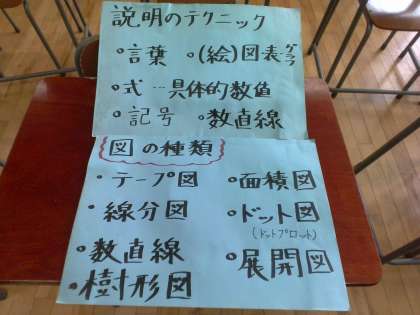 説明のテクニック
•言葉 •(絵)図表グラフ
•式…具体的数値
•記号 •数直線
図の種類
•テープ図 •面積図
•線分図 •ドット図
(ドットプロット)
•数直線 •展開図
•樹形図